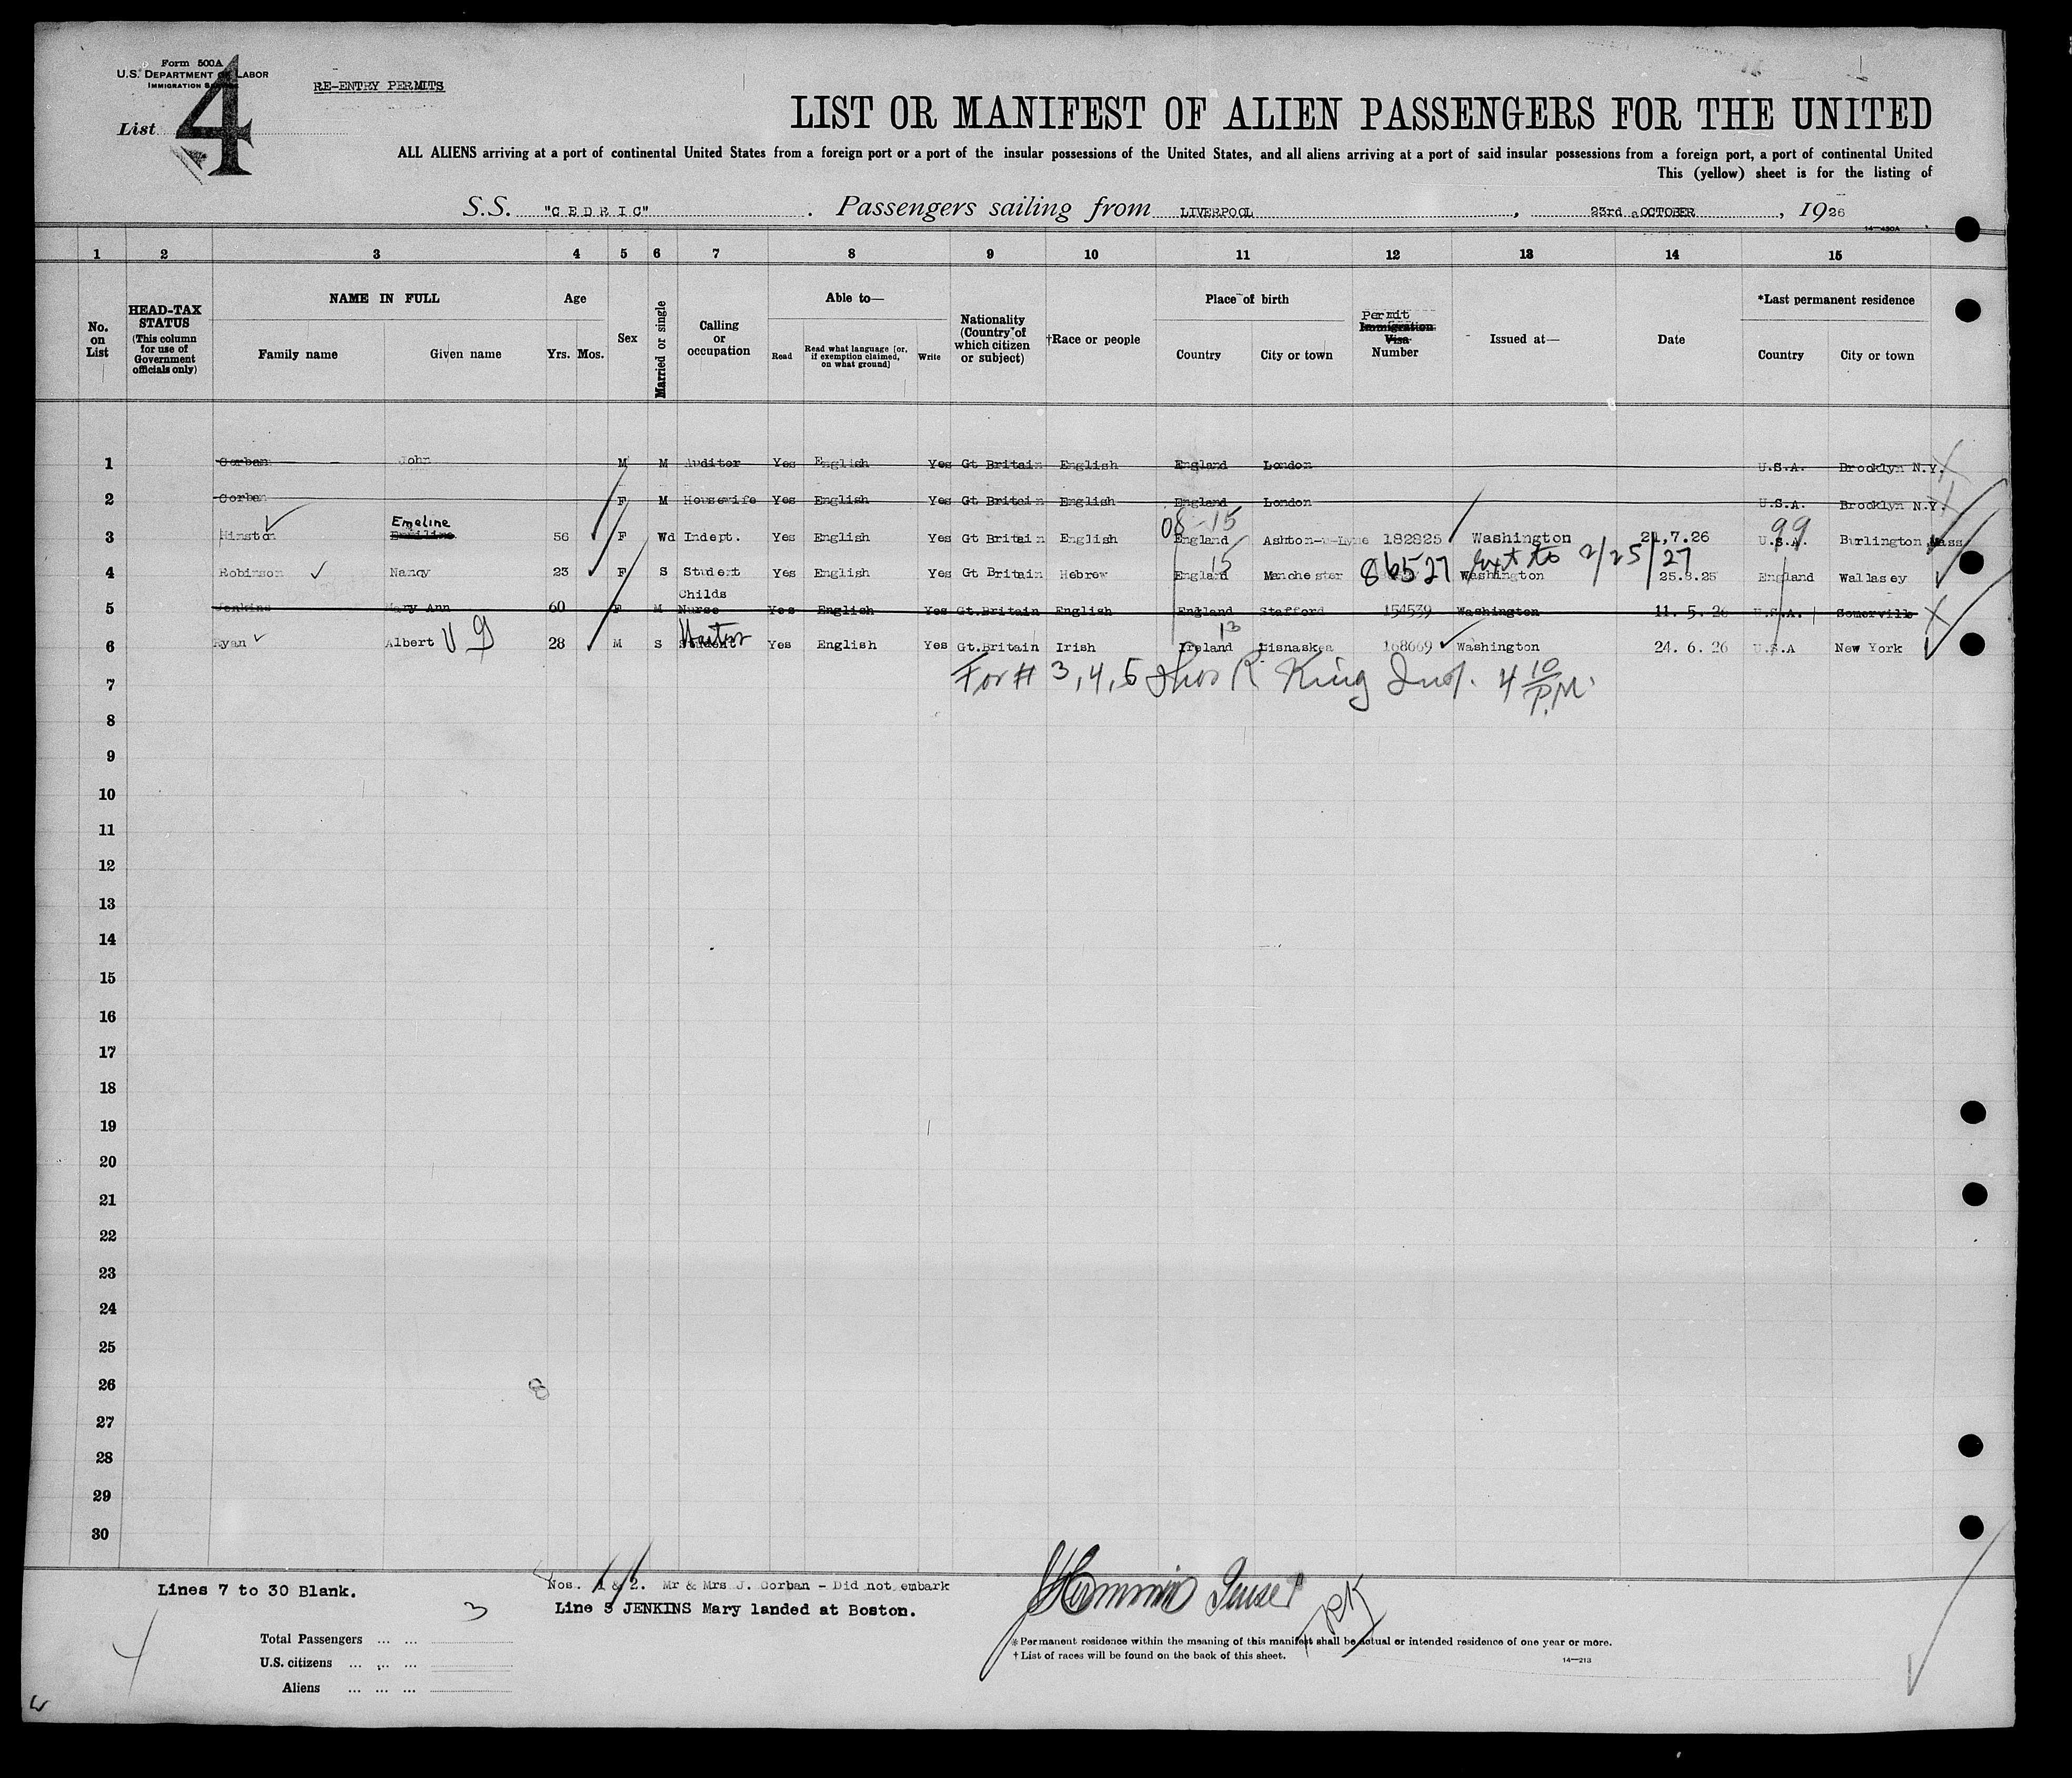 Form 500A
U.S. DEPARTMENT OF LABOR
IMMIGRATION
RE-ENTRY PERMITS
List 4
LIST OR MANIFEST OF ALIEN PASSENGERS FOR THE UNITED
ALL ALIENS arriving at a port of continental United States from a foreign port or a port of the insular possessions of the United States, and all aliens arriving at a port of said insular possessions from a foreign port, a port of continental United
This (yellow) sheet is for the listing of
S.S. "CEDRIC". Passengers sailing from LIVERPOOL, 23rd OCTOBER, 1926
14—430A
1 2 3 4 5 6 7 8 9 10 11 12 13 14 15
No. on List
HEAD-TAX STATUS (This column for use of Government officials only)
NAME IN FULL
Family name Given name
Age
Yrs. Mos.
Sex
Married or single
Calling or occupation
Able to—
Read Read what language [or, if exemption claimed, on what ground] Write
Nationality (Country of which citizen or subject)
†Race or people
Place of birth
Country City or town
Permit
Immigration Visa Number
Issued at—
Date
*Last permanent residence
Country City or town
1 Corban John M M Auditor Yes English Yes Gt Britain English England London U.S.A. Brooklyn N.Y.
2 Corban F M Housewife Yes English Yes Gt Britain English England London U.S.A. Brooklyn N.Y.
Emeline 08-15 99
3 Hinston 56 F Wd Indept. Yes English Yes Gt Britain English England Ashton-u-Lyne 182825 Washington 21,7.26 U.S.A. Burlington Mass
15 86527 Ext to 2/25/27
4 Robinson Nancy 23 F S Student Yes English Yes Gt Britain Hebrew England Manchester Washington 25.8.25 England Wallasey
Childs
5 Jenkins Mary Ann 60 F M Nurse Yes English Yes Gt.Britain English England Stafford 154539 Washington 11. 5. 26 U.S.A. Somerville
13
6 Ryan Albert 28 M S Student Yes English Yes Gt.Britain Irish Ireland Lisnaskea 168669 Washington 24. 6. 26 U.S.A New York
For # 3, 4, 6 Thos R. King Insp. 4 10 P.M.
7
8
9
10
11
12
13
14
15
16
17
18
19
20
21
22
23
24
25
26
27
28
29
30
Lines 7 to 30 Blank.
Nos. 1 & 2. Mr & Mrs J. Corban - Did not embark
Line 5 JENKINS Mary landed at Boston.
3
TRK
Total Passengers ... ...
U.S. citizens ... ... ...
Aliens ... ... ...
* Permanent residence within the meaning of this manifest shall be actual or intended residence of one year or more.
† List of races will be found on the back of this sheet.
14—213